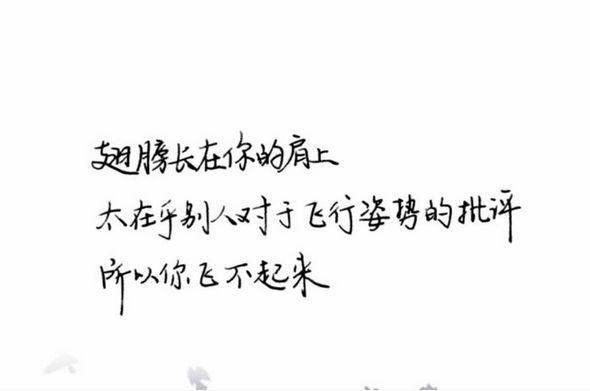 翅膀长在你的肩上
太在乎别人对于飞行姿势的批评
所以你飞不起来